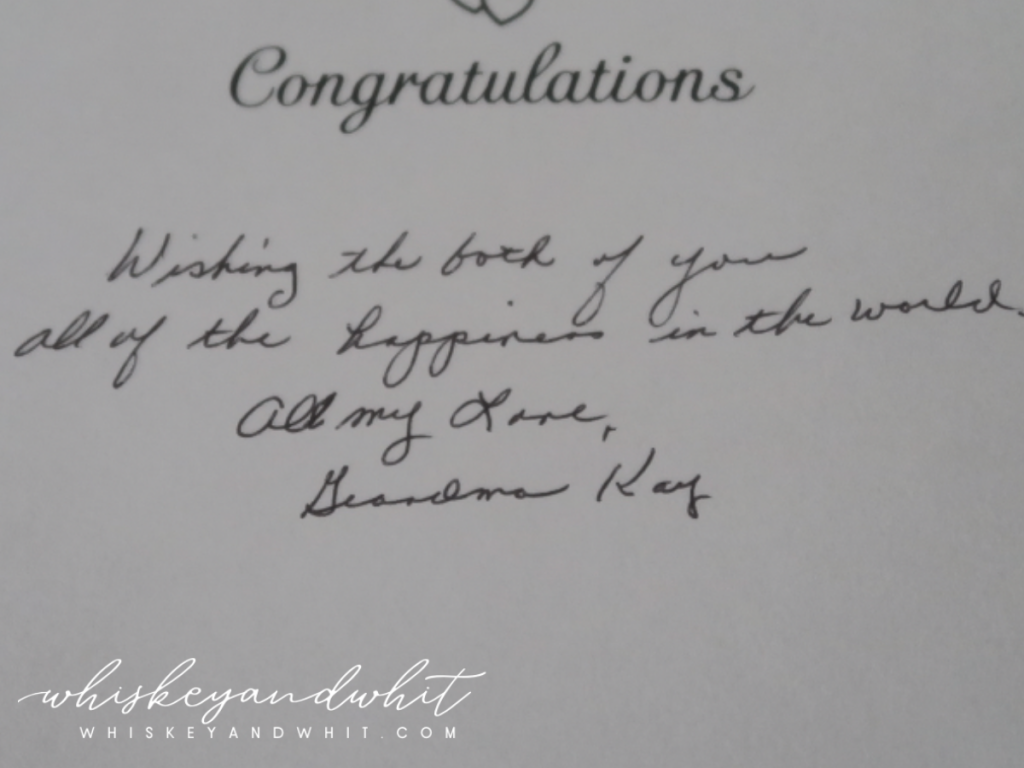 Congratulations
Wishing the both of you
all of the happiness in the world.
All my Love,
Grandma Kay
whiskeyandwhit
WHISKEYANDWHIT.COM